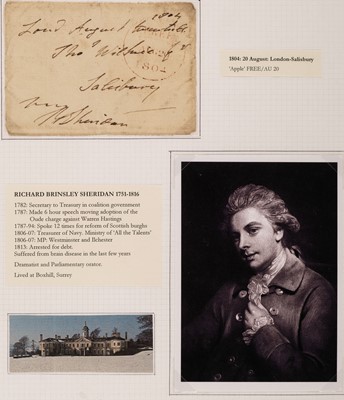 1804
Lond August twentieth
Thos
Salisbury
1804
RSheridan
1804: 20 August: London-Salisbury
'Apple' FREE/AU 20
RICHARD BRINSLEY SHERIDAN 1751-1816
1782: Secretary to Treasury in coalition government
1787: Made 6 hour speech moving adoption of the
Oude charge against Warren Hastings
1787-94: Spoke 12 times for reform of Scottish burghs
1806-07: Treasurer of Navy. Ministry of 'All the Talents'
1806-07: MP: Westminster and Ilchester
1815: Arrested for debt.
Suffered from brain disease in the last few years
Dramatist and Parliamentary orator.
Lived at Boxhill, Surrey